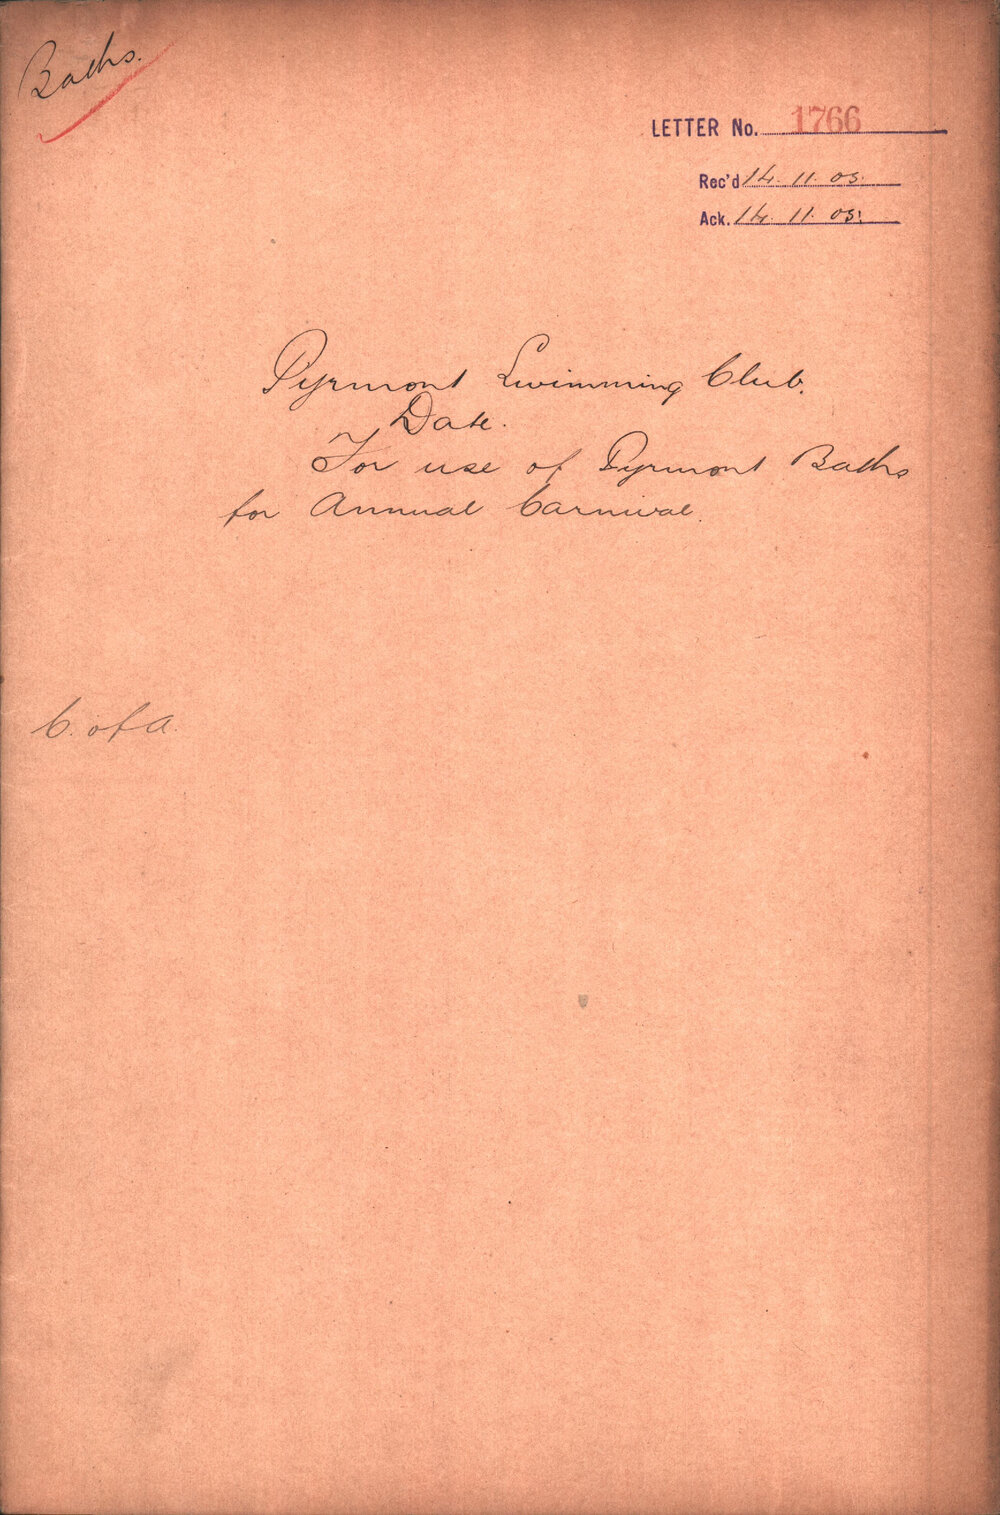 Baths.
LETTER No. 1766
Rec'd 14. 11. 05.
Ack. 14. 11. 05.
Pyrmont Swimming Club.
Date.
For use of Pyrmont Baths
for Annual Carnival.
C. of A.